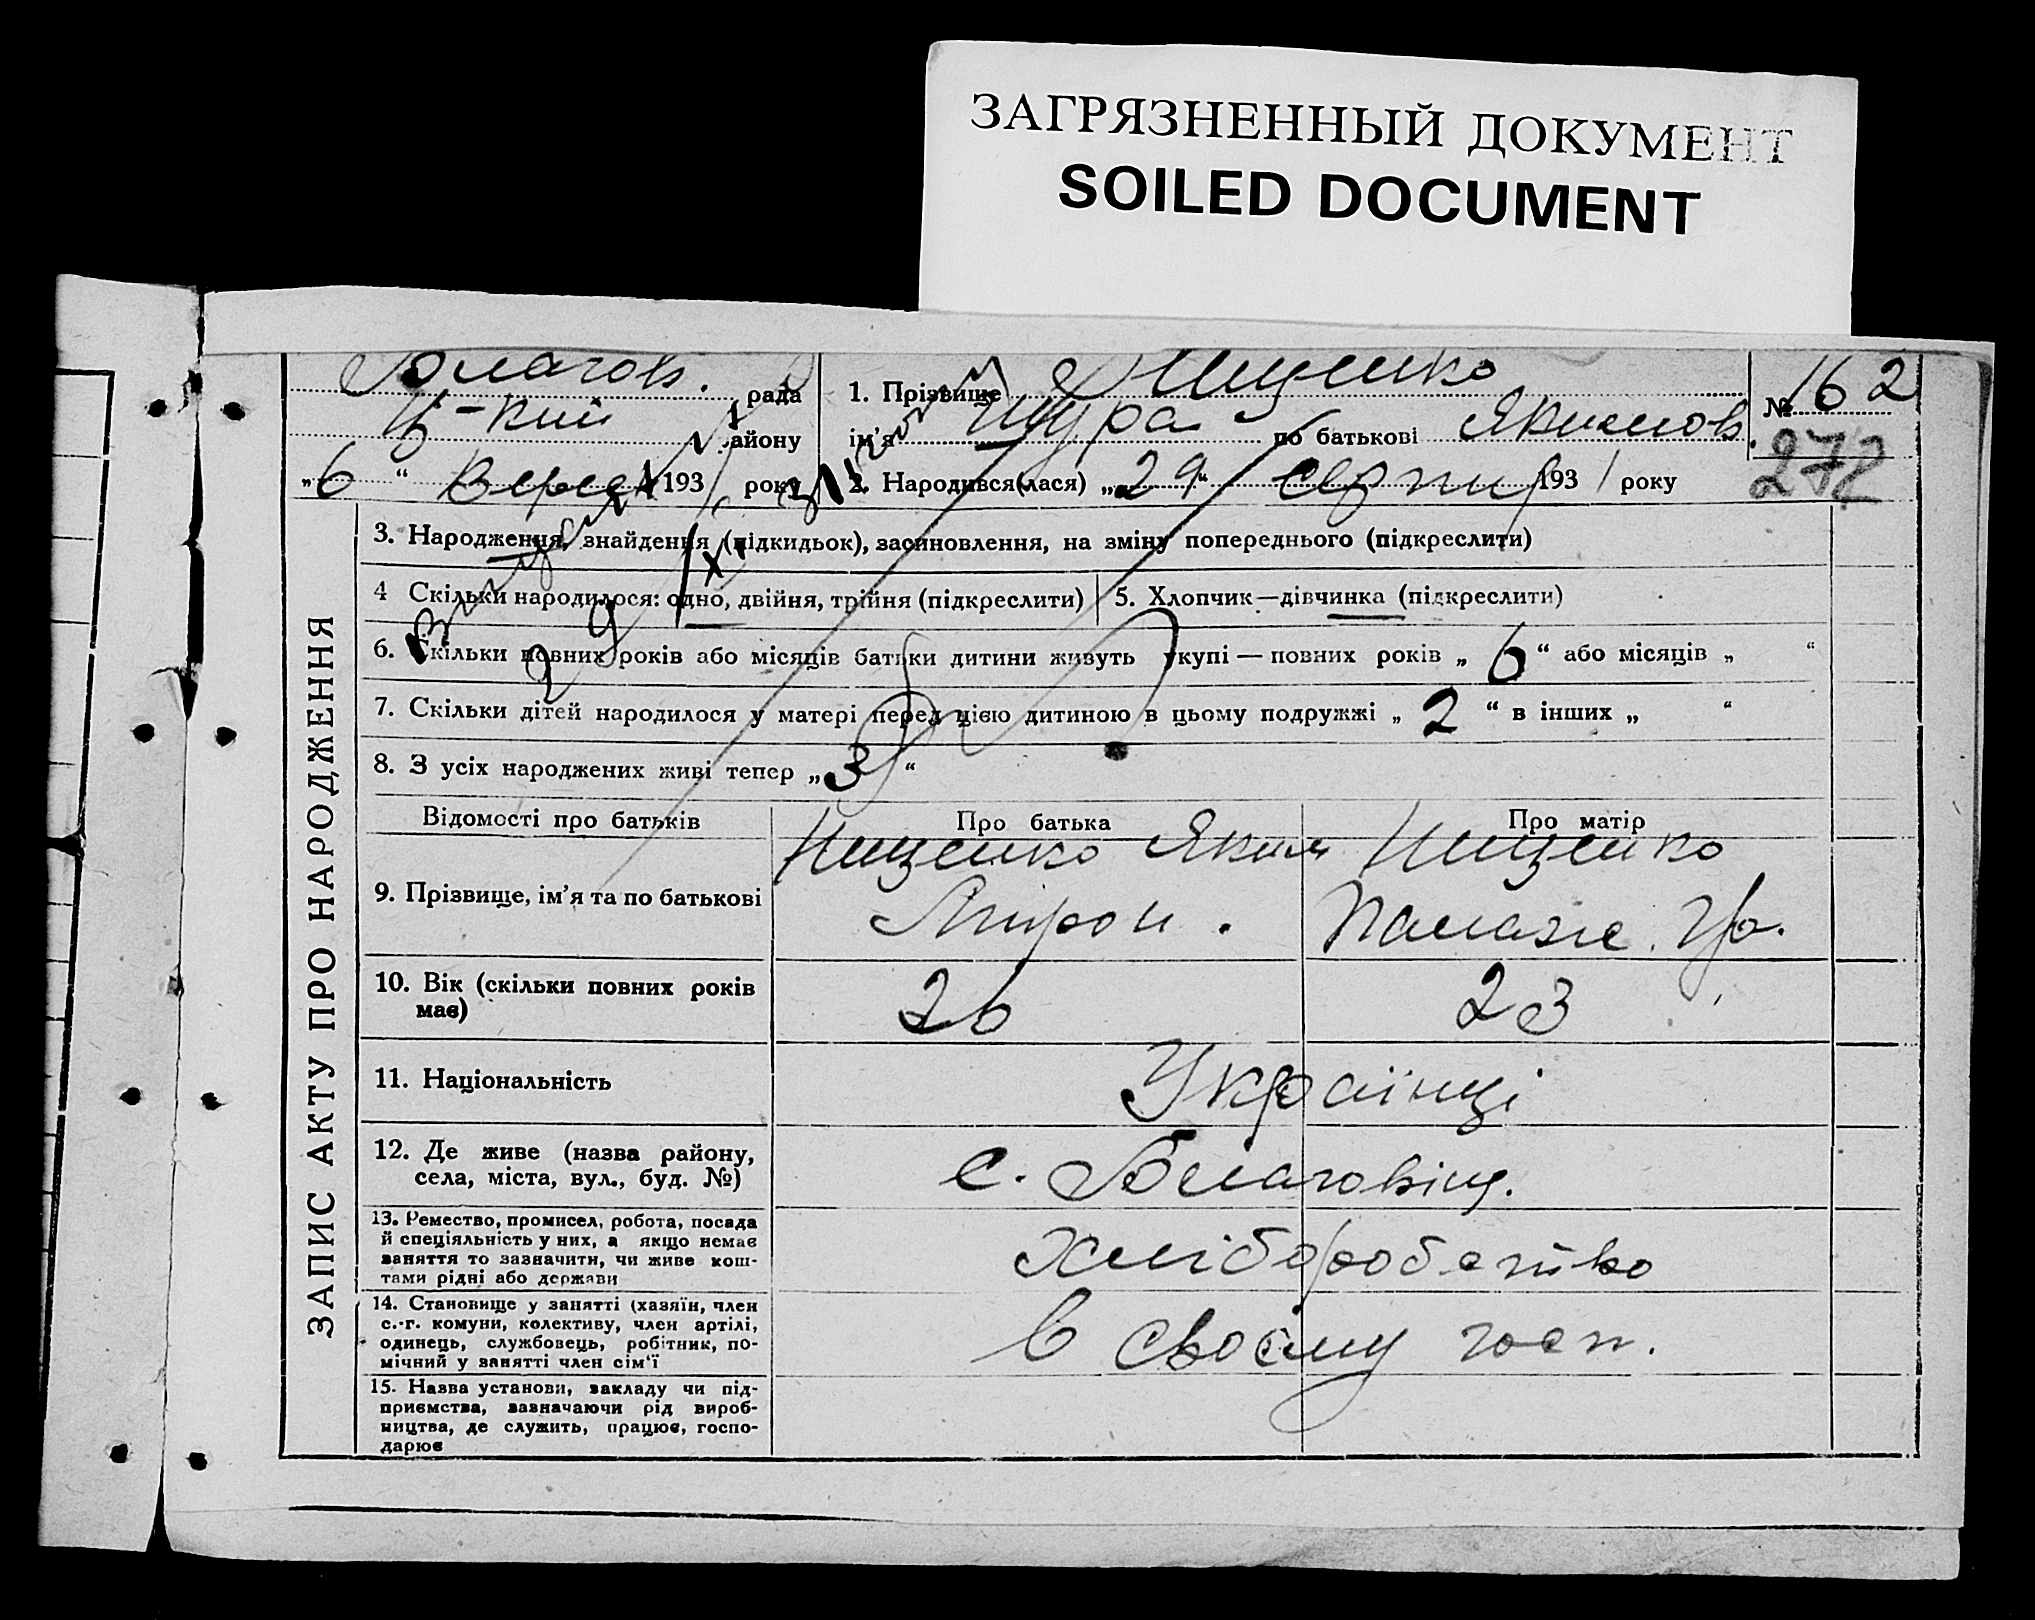 ЗАГРЯЗНЕННЫЙ ДОКУМЕНТ
SOILED DOCUMENT
Благов. рада
району
„6“ Верес 1931 року
1. Прізвище Нищенко
ім’я Шура по батькові Якимов.
2. Народився(лася) „29“ серпня 1931 року
№ 162
272
ЗАПИС АКТУ ПРО НАРОДЖЕННЯ
3. Народження, знайдення (підкидьок), засиновлення, на зміну попереднього (підкреслити)
4 Скільки народилося: одно, двійня, трійня (підкреслити)
5. Хлопчик—дівчинка (підкреслити)
6. Скільки повних років або місяців батьки дитини живуть укупі — повних років „6“ або місяців „ “
7. Скільки дітей народилося у матері перед цією дитиною в цьому подружжі „2“ в інших „ “
8. З усіх народжених живі тепер „3“
Відомості про батьків
Про батька
Про матір
9. Прізвище, ім’я та по батькові
Нищенко Яким
Мирон.
Нищенко
10. Вік (скільки повних років
має)
26
23
11. Національність
Українці
12. Де живе (назва району,
села, міста, вул., буд. №)
с. Благовіщ.
13. Ремество, промисел, робота, посада
й спеціяльність у них, а якщо немає
заняття то зазначити, чи живе кош-
тами рідні або держави
хліборобство
14. Становище у занятті (хазяїн, член
с.-г. комуни, колективу, член артілі,
одинець, службовець, робітник, по-
мічний у занятті член сім’ї
в своєму госп.
15. Назва установи, закладу чи під-
приємства, зазначаючи рід вироб-
ництва, де служить, працює, госпо-
дарює